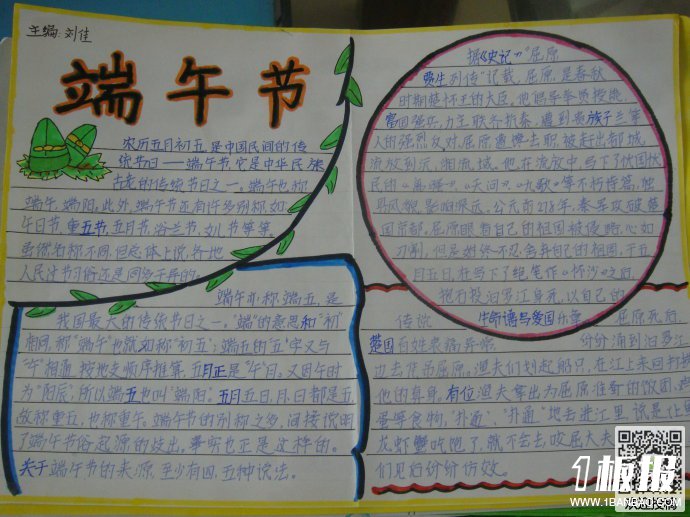 主编:刘佳
端午节
农历五月初五,是中国民间的传
统节日——端午节,它是中华民族
古老的传统节日之一。端午也称
端午,端阳。此外,端午节还有许多别称,如:
午日节,重五节,五月节,浴兰节,女儿节等等。
虽然名称不同,但总体上说,各地
人民过节习俗还是同多于异的。
端午亦称端五,是
我国最大的传统节日之一,"端"的意思和"初"
相同,称"端午"也就如称"初五";端五的"五"字又与
"午"相通,按地支顺序推算,五月正是"午"月。又因午时
为"阳辰",所以端五也叫"端阳"。五月五日,月、日都是五,
故称重五,也称重午。端午节的别称之多,间接说明
了端午节俗起源的歧出。事实也正是这样的。
关于端午节的来源,至少有四、五种说法。
据《史记》"屈原
贾生列传"记载,屈原,是春秋
时期楚怀王的大臣。他倡导举贤授能,
富国强兵,力主联齐抗秦,遭到贵族子兰等
人的强烈反对,屈原遭谗去职,被赶出都城,
流放到沅、湘流域。他在流放中,写下了忧国忧
民的《离骚》、《天问》、《九歌》等不朽诗篇,独
具风貌,影响深远。公元前278年,秦军攻破楚
国京都。屈原眼看自己的祖国被侵略,心如
刀割,但是始终不忍舍弃自己的祖国,于五
月五日,在写下了绝笔作《怀沙》之后,
抱石投汨罗江身死,以自己的
生命谱写爱国乐章
传说 屈原死后,
楚国百姓哀痛异常 纷纷涌到汨罗江
边去凭吊屈原。渔夫们划起船只,在江上来回打捞
他的真身。有位渔夫拿出为屈原准备的饭团、鸡
蛋等食物,"扑通、扑通"地丢进江里,说是让鱼
龙虾蟹吃饱了,就不会去咬屈大夫
们见后纷纷仿效。
1板报
WWW.1BANBAO.COM